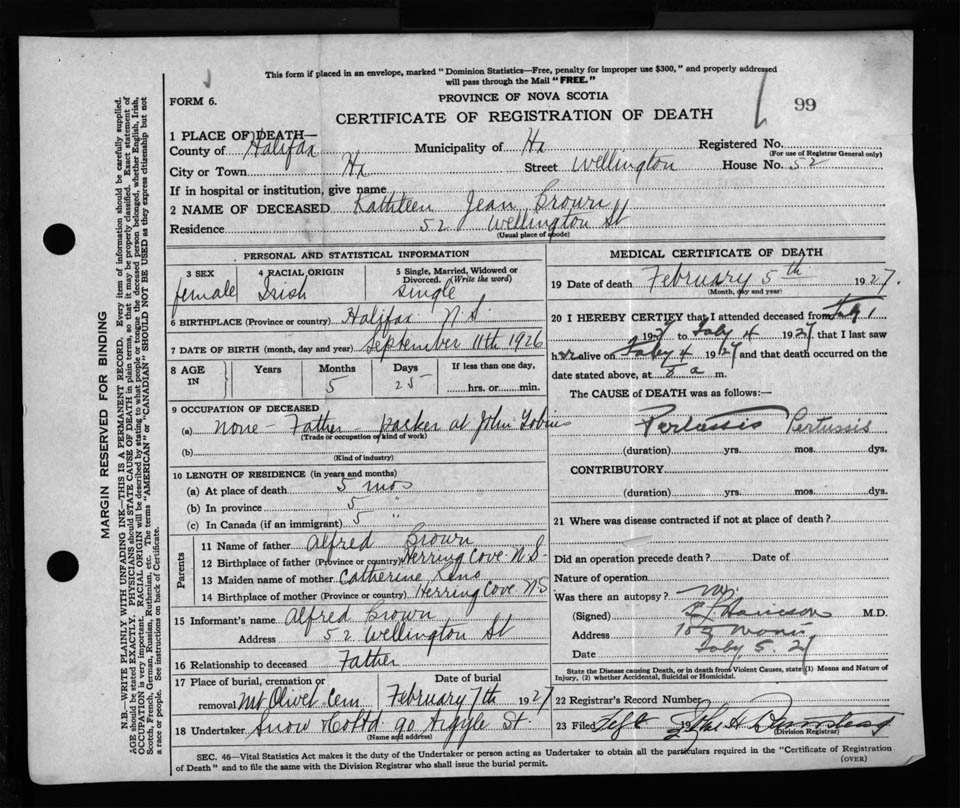 This form if placed in an envelope, marked "Dominion Statistics—Free, penalty for improper use $300," and properly addressed
will pass through the Mail "FREE."
FORM 6.
PROVINCE OF NOVA SCOTIA
99
CERTIFICATE OF REGISTRATION OF DEATH
1 PLACE OF DEATH—
County of Halifax Municipality of Hx Registered No.
(For use of Registrar General only)
City or Town Hx Street Wellington House No. 52
If in hospital or institution, give name
2 NAME OF DECEASED Kathleen Jean Brown
Residence 52 Wellington St
(Usual place of abode)
PERSONAL AND STATISTICAL INFORMATION
3 SEX 4 RACIAL ORIGIN 5 Single, Married, Widowed or Divorced. (Write the word)
female Irish single
6 BIRTHPLACE (Province or country) Halifax N.S.
7 DATE OF BIRTH (month, day and year) September 11th 1926
8 AGE IN Years Months Days If less than one day,
5 25 hrs. or min.
9 OCCUPATION OF DECEASED
(a) none - Father - packer at John Tobins
(Trade or occupation or kind of work)
(b)
(Kind of industry)
10 LENGTH OF RESIDENCE (in years and months)
(a) At place of death 5 mos
(b) In province 5 "
(c) In Canada (if an immigrant) 5 "
Parents
11 Name of father Alfred Brown
12 Birthplace of father (Province or country) Herring Cove N.S.
13 Maiden name of mother Catherine
14 Birthplace of mother (Province or country) Herring Cove NS
15 Informant's name Alfred Brown
Address 52 Wellington St
16 Relationship to deceased Father
17 Place of burial, cremation or removal Date of burial
Mt Olivet Cem February 7th 1927
18 Undertaker Snow Co Ltd 90 Argyle St
(Name and address)
MEDICAL CERTIFICATE OF DEATH
19 Date of death February 5th 1927.
(Month, day and year)
20 I HEREBY CERTIFY that I attended deceased from Feby 1
1927 to Feby 4 1927 that I last saw
her alive on Feby 4 1927 and that death occurred on the
date stated above, at 8 a m.
The CAUSE of DEATH was as follows:—
Pertussis Pertussis
(duration) yrs. mos. dys.
CONTRIBUTORY
(duration) yrs. mos. dys.
21 Where was disease contracted if not at place of death?
Did an operation precede death? Date of
Nature of operation
Was there an autopsy? No.
(Signed) M.D.
Address
Date Feby 5. 27
State the Disease causing Death, or in death from Violent Causes, state (1) Means and Nature of
Injury, (2) whether Accidental, Suicidal or Homicidal.
22 Registrar's Record Number
23 Filed
(Division Registrar)
SEC. 46—Vital Statistics Act makes it the duty of the Undertaker or person acting as Undertaker to obtain all the particulars required in the "Certificate of Registration
of Death" and to file the same with the Division Registrar who shall issue the burial permit.
(OVER)
MARGIN RESERVED FOR BINDING
N.B.—WRITE PLAINLY WITH UNFADING INK—THIS IS A PERMANENT RECORD. Every item of information should be carefully supplied.
AGE should be stated EXACTLY. PHYSICIANS should STATE CAUSE OF DEATH in plain terms, so that it may be properly classified. Exact statement of
OCCUPATION is very important. RACIAL ORIGIN will be described by stating to what people or tongue the deceased person belonged, whether English, Irish,
Scotch, French, German, Russian, Ruthenian, etc. The terms "AMERICAN" or "CANADIAN" SHOULD NOT BE USED as they express citizenship but not
a race or people. See instructions on back of Certificate.